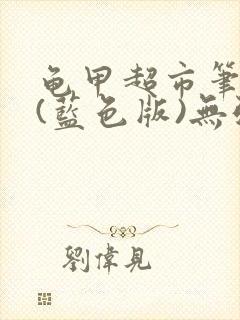 龟甲超市筆
(藍色版)無
劉偉見